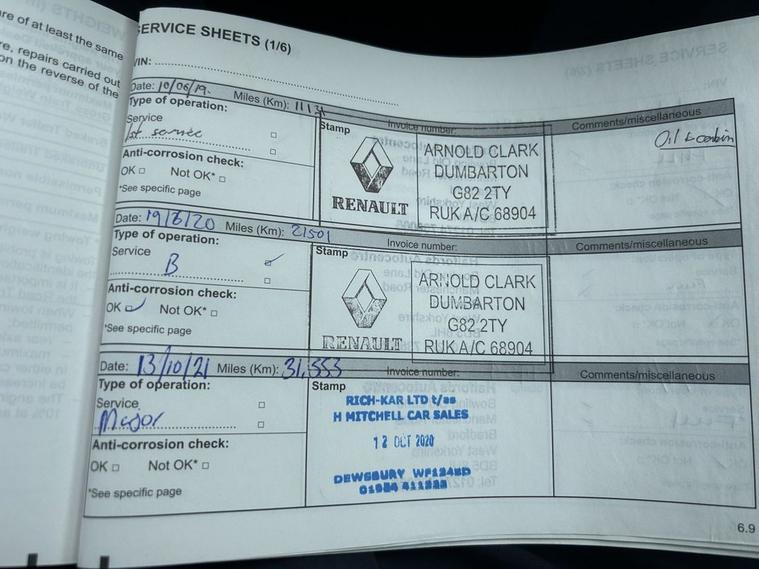 re of at least the same
re, repairs carried out
on the reverse of the
SERVICE SHEETS (1/6)
VIN:
Date: 10/06/19. Miles (Km): 11131
Type of operation:
Service
1st service
Anti-corrosion check:
OK Not OK*
*See specific page
Stamp
Invoice number:
RENAULT
ARNOLD CLARK
DUMBARTON
G82 2TY
RUK A/C 68904
Comments/miscellaneous
Oil & cabin
Date: 19/8/20 Miles (Km): 21501
Type of operation:
Service
B
Anti-corrosion check:
OK Not OK*
*See specific page
Stamp
Invoice number:
RENAULT
ARNOLD CLARK
DUMBARTON
G82 2TY
RUK A/C 68904
Comments/miscellaneous
Date: 13/10/21 Miles (Km): 31,553
Type of operation:
Service
Major
Anti-corrosion check:
OK Not OK*
*See specific page
Stamp
Invoice number:
RICH-KAR LTD t/as
H MITCHELL CAR SALES
12 OCT 2020
DEWSBURY
Comments/miscellaneous
6.9